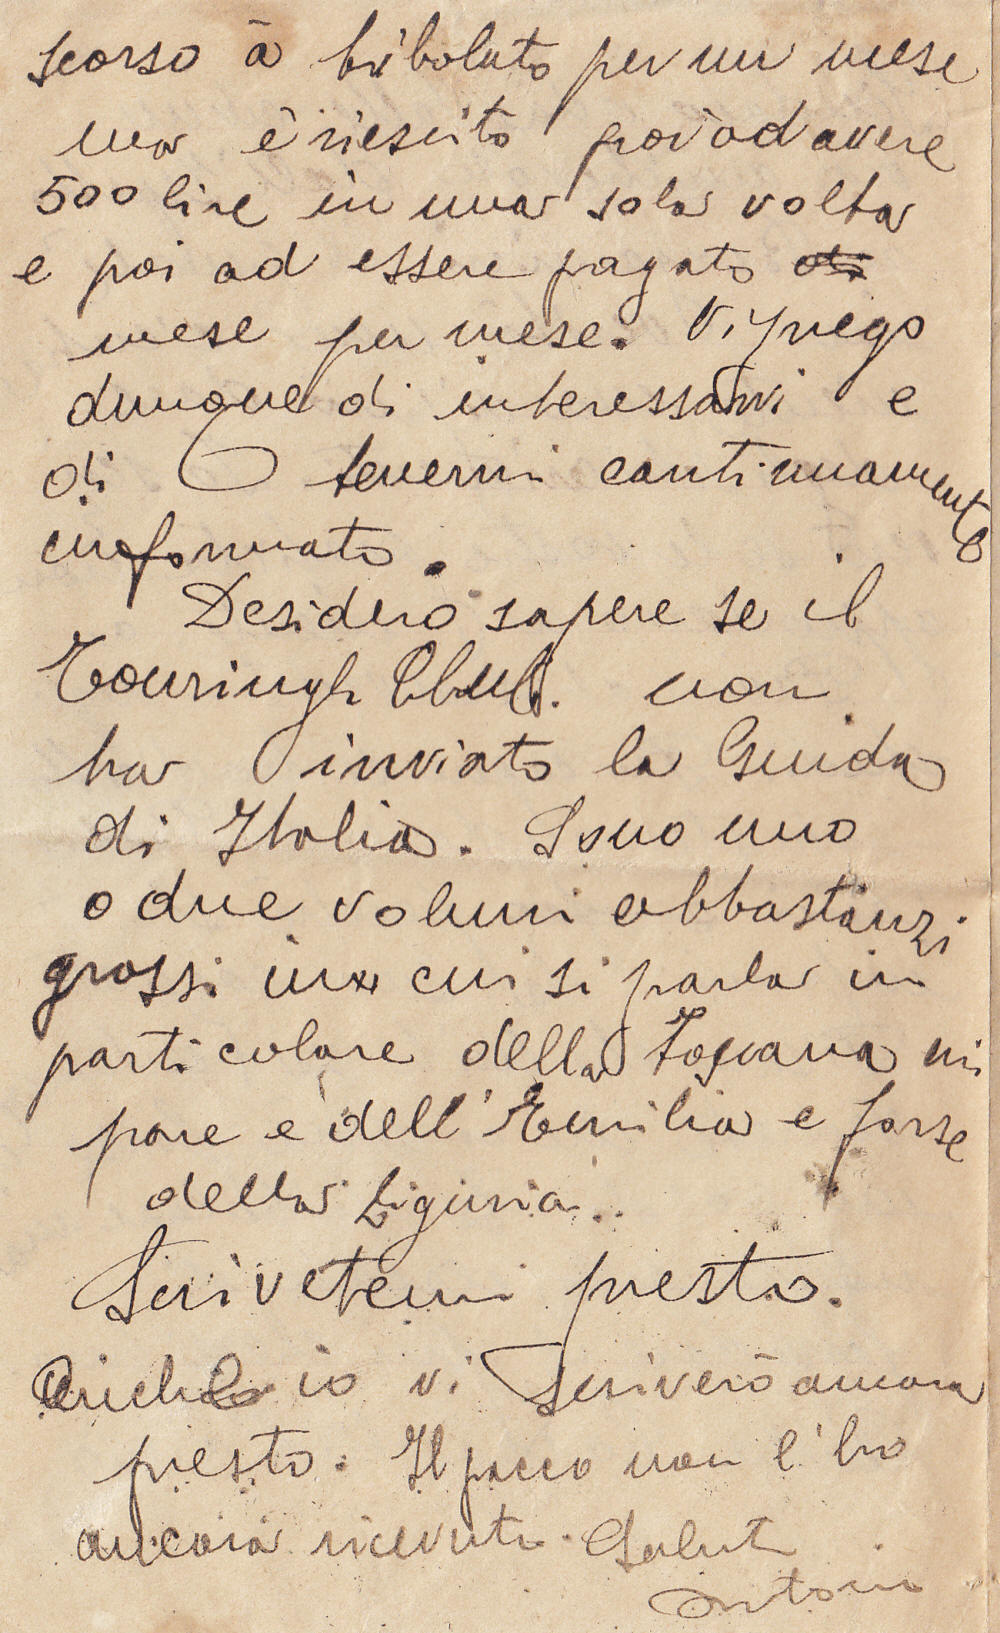 scorso à tribolato per un mese
ma è riescito però ad avere
500 lire in una sola volta
e poi ad essere pagato
mese per mese. Vi prego
dunque di interessarvi e
di tenermi continuamente
informato.
Desidero sapere se il
Touringh Club. non
ha inviato la Guida
di Italia. Sono uno
o due volumi abbastanzi
grossi in cui si parla in
particolare della Toscana mi
pare e dell'Emilia e forse
della Liguria..
Scrivetemi presto.
Anche io vi scriverò ancora
presto. Il pacco non l'ho
ancora ricevuto. Saluti
Antonio